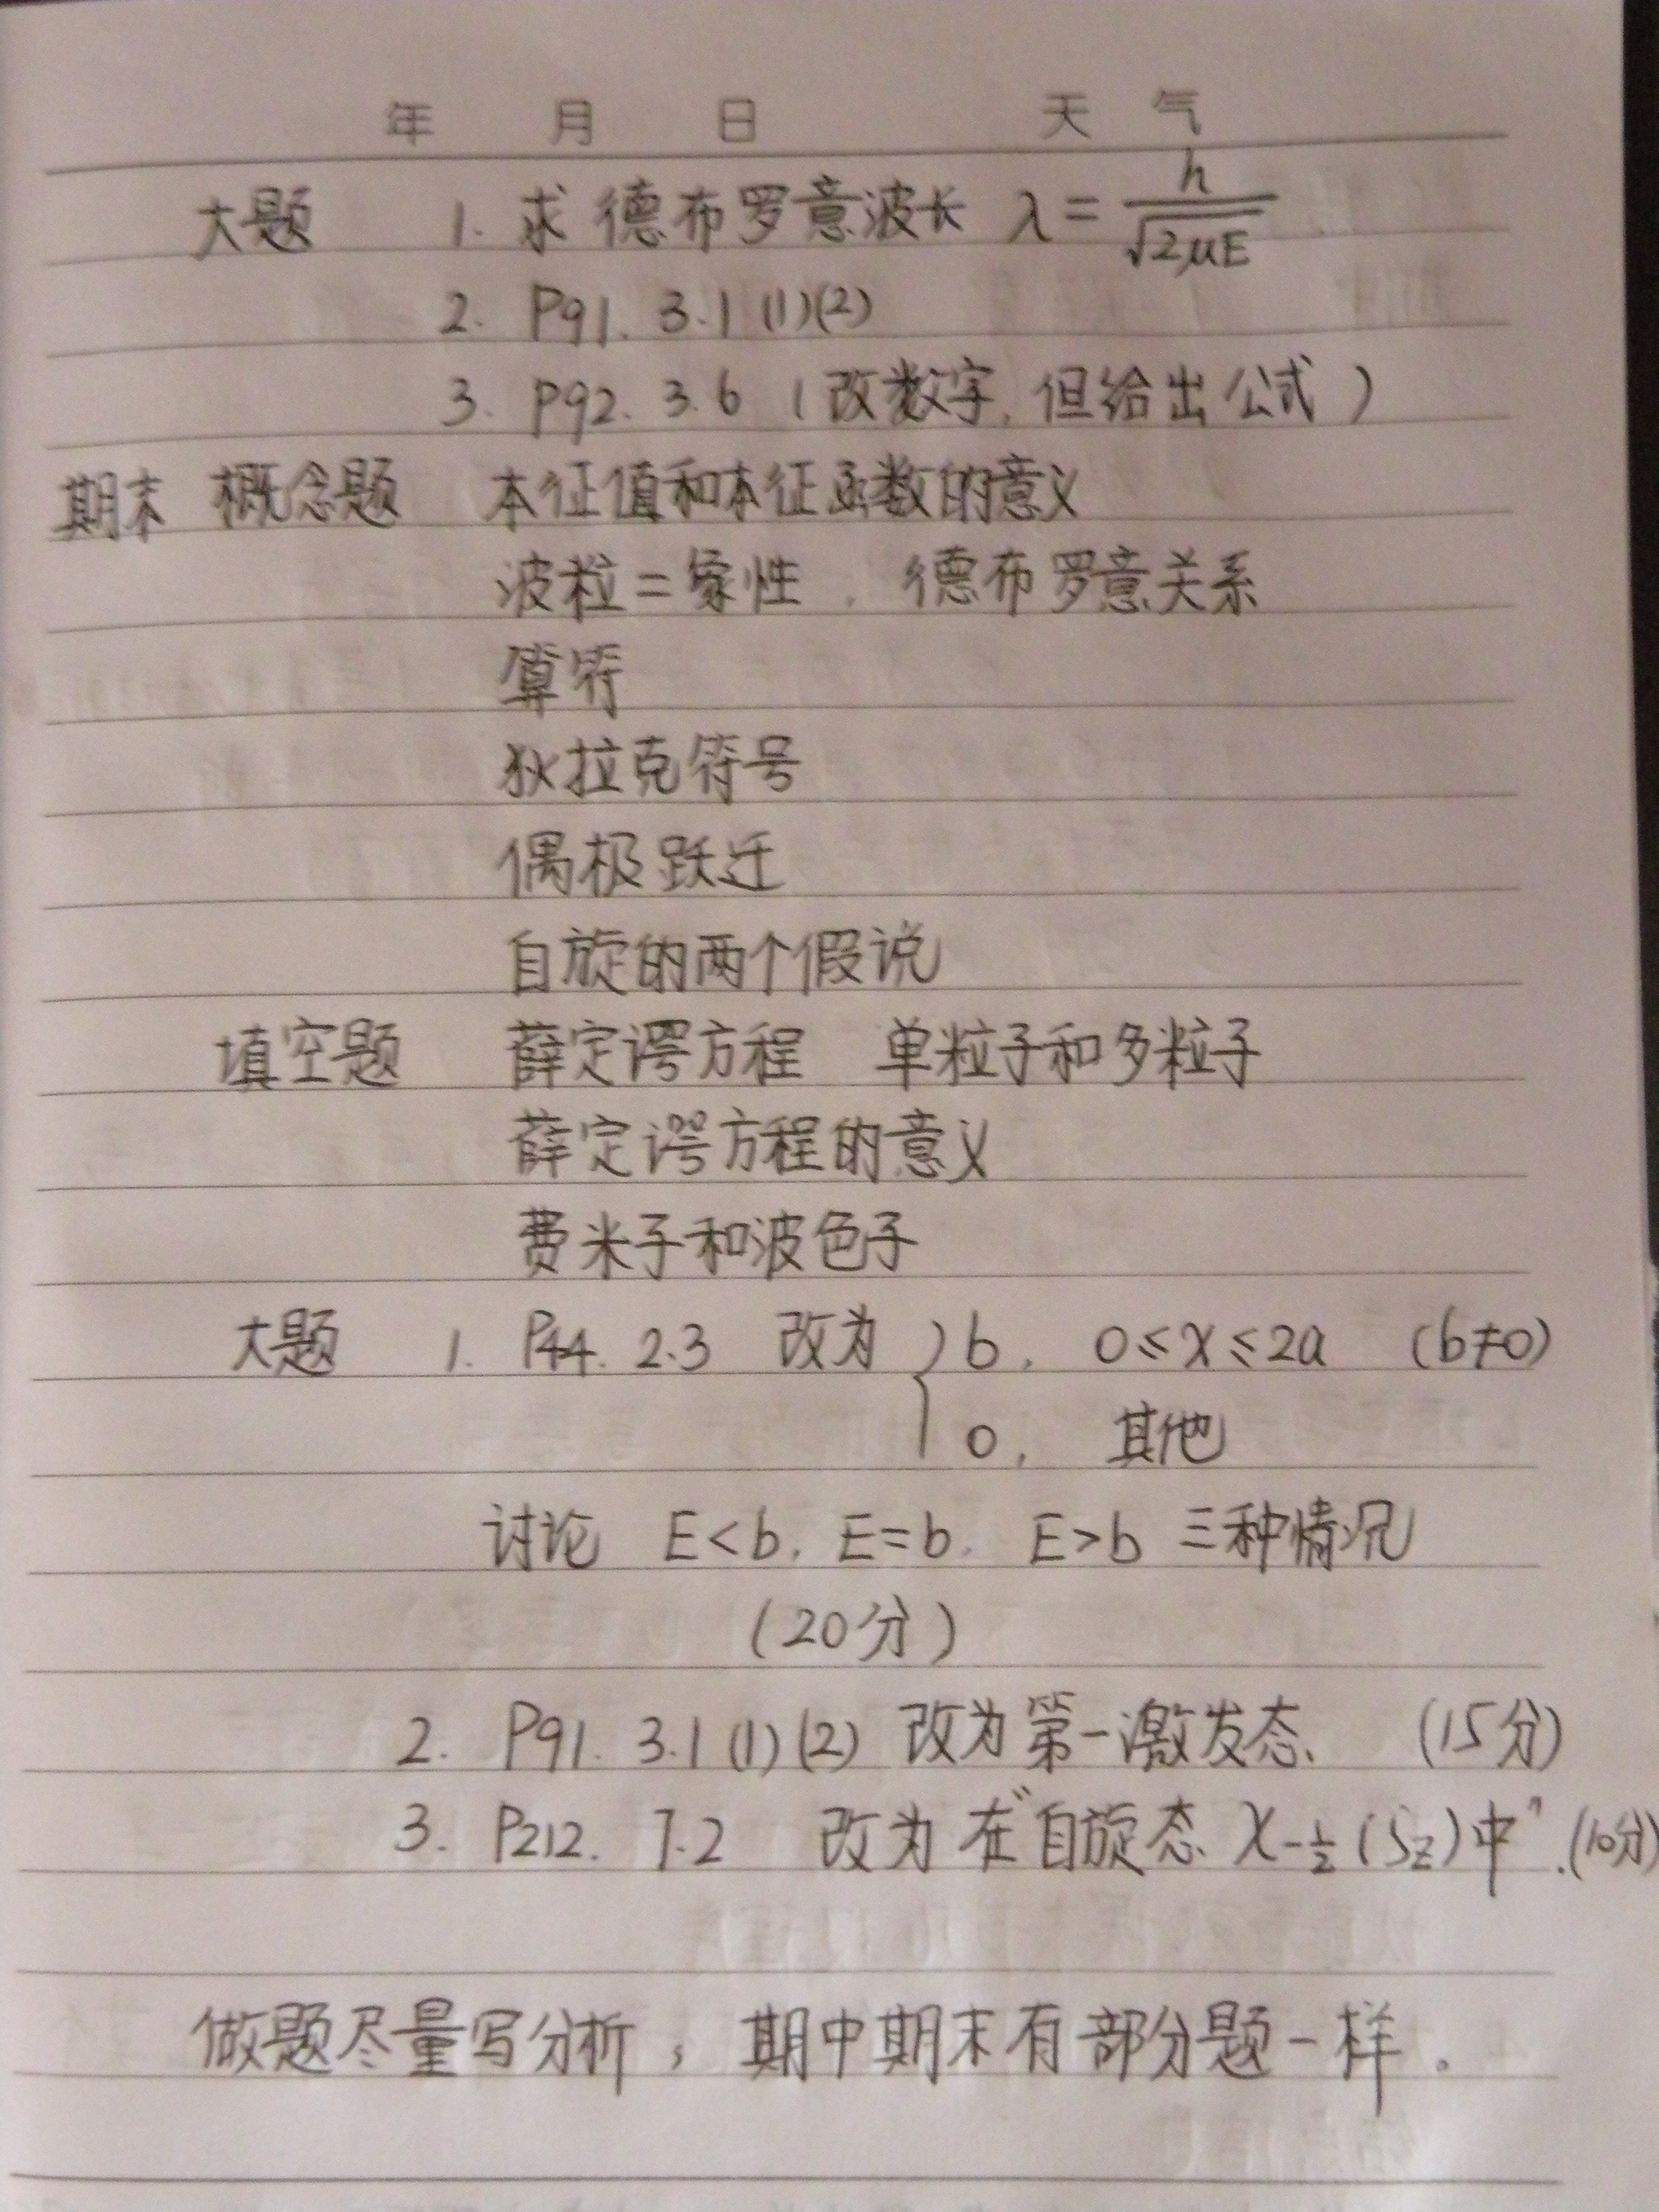 年 月 日 天 气
大题 1. 求德布罗意波长 λ = h/√2μE
2. P91. 3.1 (1)(2)
3. P92. 3.6 (改数字, 但给出公式)
期末 概念题 本征值和本征函数的意义
波粒二象性, 德布罗意关系
算符
狄拉克符号
偶极跃迁
自旋的两个假说
填空题 薛定谔方程 单粒子和多粒子
薛定谔方程的意义
费米子和波色子
大题 1. P44. 2.3 改为 { b, 0≤x≤2a (b≠0)
0, 其他
讨论 E<b, E=b, E>b 三种情况
(20分)
2. P91. 3.1 (1)(2) 改为第一激发态 (15分)
3. P212. 7.2 改为 在"自旋态 χ-½(Sz)中". (10分)
做题尽量写分析, 期中期末有部分题一样.